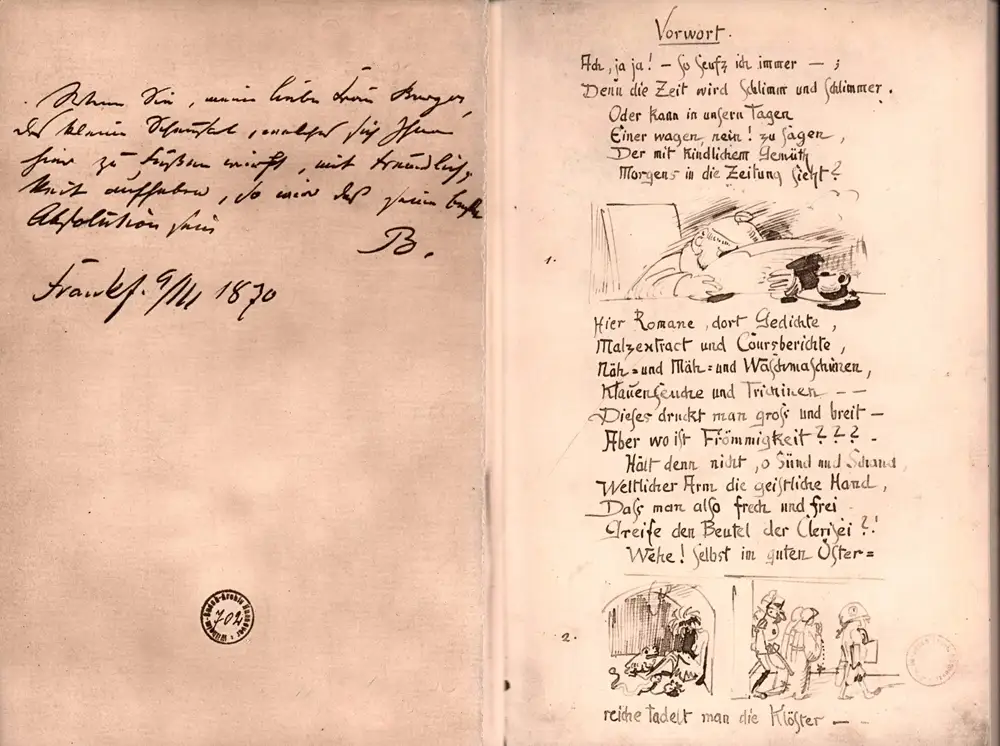 Wenn Sie, meine liebe Frau Kurger,
das kleine Scheusal, welches sich Ihnen
hier zu Füßen wirft, mit Freundlich-
keit aufheben, so wird das seine beste
Absolution sein
B.
Frankf. 9/III 1870
Wilhelm-Busch-Archiv Hannover
702
Vorwort.
Ach, ja ja! — so seufz ich immer — ;
Denn die Zeit wird schlimm und schlimmer.
Oder kann in unsern Tagen
Einer wagen, nein! zu sagen,
Der mit kindlichem Gemüth
Morgens in die Zeitung sieht?
1.
Hier Romane, dort Gedichte,
Malzextract und Coursberichte,
Näh- und Mäh- und Waschmaschinen,
Klauenseuche und Trichinen — —
Dieses druckt man groß und breit —
Aber wo ist Frömmigkeit???
Hält denn nicht, o Sünd und Schand,
Weltlicher Arm die geistliche Hand,
Dass man also frech und frei
Greife den Beutel der Clerisei?!
Wehe! Selbst im guten Öster=
2.
reiche tadelt man die Klöster — —